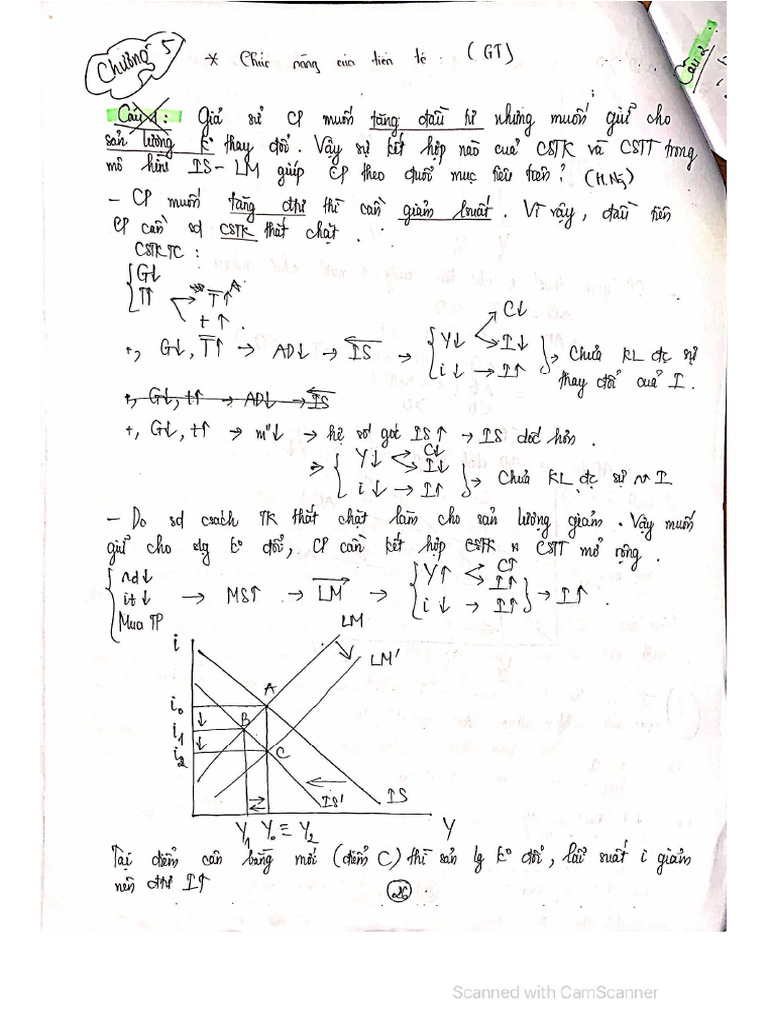 Chương 5
* Chức năng của tiền tệ: (GT)
Câu 2
Câu 1: Giả sử CP muốn tăng đầu tư nhưng muốn giữ cho
sản lượng ko thay đổi. Vậy sự kết hợp nào của CSTK và CSTT trong
mô hình IS-LM giúp CP theo đuổi mục tiêu trên?
- CP muốn tăng đtư thì cần giảm lsuất. Vì vậy, đầu tiên
CP cần sd CSTK thắt chặt.
CSTKTC:
G↓
T↑ T̅↑
t↑.
+, G↓, T̅↑ → AD↓ → IS → Y↓ C↓ I↓ i↓ → I↑ → Chưa KL đc sự
thay đổi của I.
+, G↓, t↑ → AD↓ → IS
+, G↓, t↑ → m"↓ → hệ số góc IS↑ → IS dốc hơn.
⇒ Y↓ C↓ I↓ i↓ → I↑ → Chưa KL đc sự I
- Do sd csách TK thắt chặt làm cho sản lượng giảm. Vậy muốn
giữ cho slg ko đổi, CP cần kết hợp CSTK CSTT mở rộng.
rd↓
it↓ → MS↑ → LM → Y↑ C↑ I↑ i↓ → I↑ → I↑.
Mua TP
i LM
LM'
A
i₀
B
i₁
C
i₂
IS' IS
Y₁ Y₀ ≡ Y₂ Y
Tại điểm cân bằng mới (điểm C) thì sản lg ko đổi, lãi suất i giảm
nên đtư I↑
26
Scanned with CamScanner